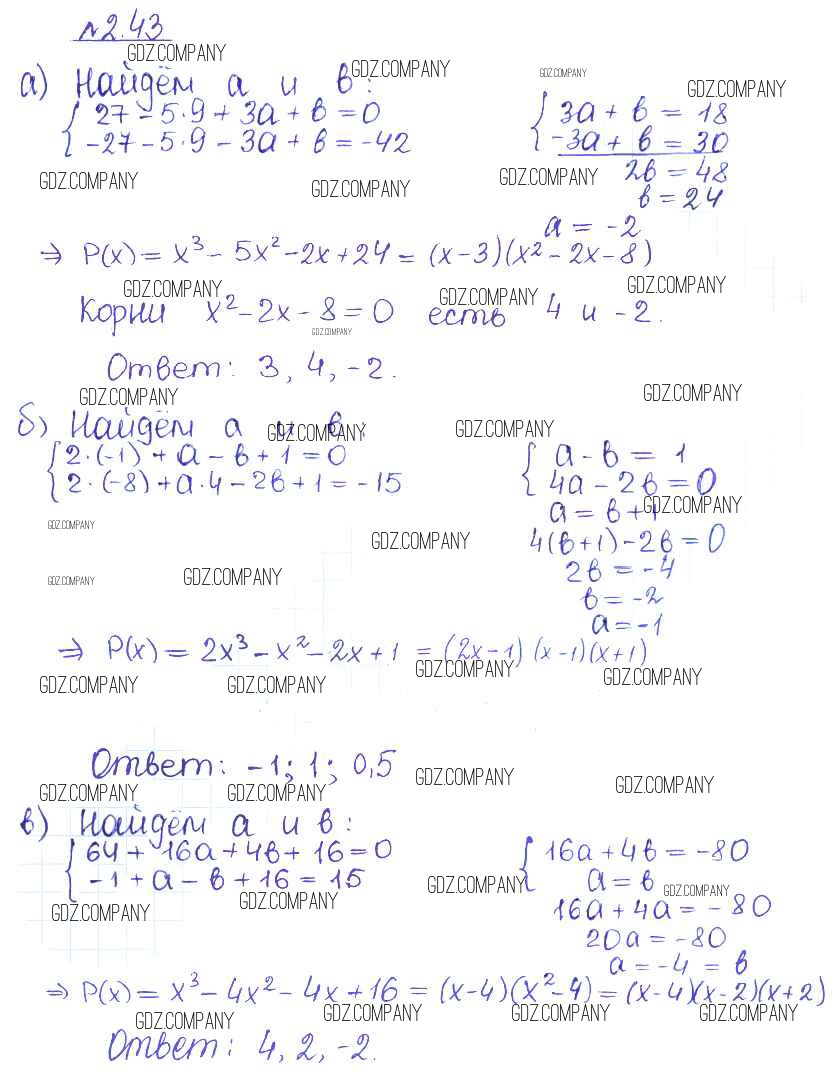 №2.43
GDZ.COMPANY
а) Найдём а и в:
GDZ.COMPANY GDZ.COMPANY GDZ.COMPANY
{ 27 - 5·9 + 3а + в = 0
-27 - 5·9 - 3а + в = -42
{ 3а + в = 18
-3а + в = 30
2в = 48
в = 24
а = -2
GDZ.COMPANY GDZ.COMPANY GDZ.COMPANY
⇒ P(x) = x³ - 5x² - 2x + 24 = (x-3)(x² - 2x - 8)
GDZ.COMPANY GDZ.COMPANY GDZ.COMPANY
Корни x² - 2x - 8 = 0 есть 4 и -2.
GDZ.COMPANY
Ответ: 3, 4, -2.
GDZ.COMPANY GDZ.COMPANY
б) Найдём а и в:
GDZ.COMPANY GDZ.COMPANY
{ 2·(-1) + а - в + 1 = 0
2·(-8) + а·4 - 2в + 1 = -15
{ а - в = 1
4а - 2в = 0
а = в + 1
GDZ.COMPANY
4(в+1) - 2в = 0
2в = -4
в = -2
а = -1
GDZ.COMPANY GDZ.COMPANY
GDZ.COMPANY GDZ.COMPANY
⇒ P(x) = 2x³ - x² - 2x + 1 = (2x-1)(x-1)(x+1)
GDZ.COMPANY GDZ.COMPANY GDZ.COMPANY GDZ.COMPANY
Ответ: -1; 1; 0,5
GDZ.COMPANY GDZ.COMPANY GDZ.COMPANY GDZ.COMPANY
в) Найдём а и в:
{ 64 + 16а + 4в + 16 = 0
-1 + а - в + 16 = 15
{ 16а + 4в = -80
а = в
16а + 4а = -80
20а = -80
а = -4 = в
GDZ.COMPANY GDZ.COMPANY GDZ.COMPANY GDZ.COMPANY
⇒ P(x) = x³ - 4x² - 4x + 16 = (x-4)(x²-4) = (x-4)(x-2)(x+2)
GDZ.COMPANY GDZ.COMPANY GDZ.COMPANY GDZ.COMPANY
Ответ: 4, 2, -2.